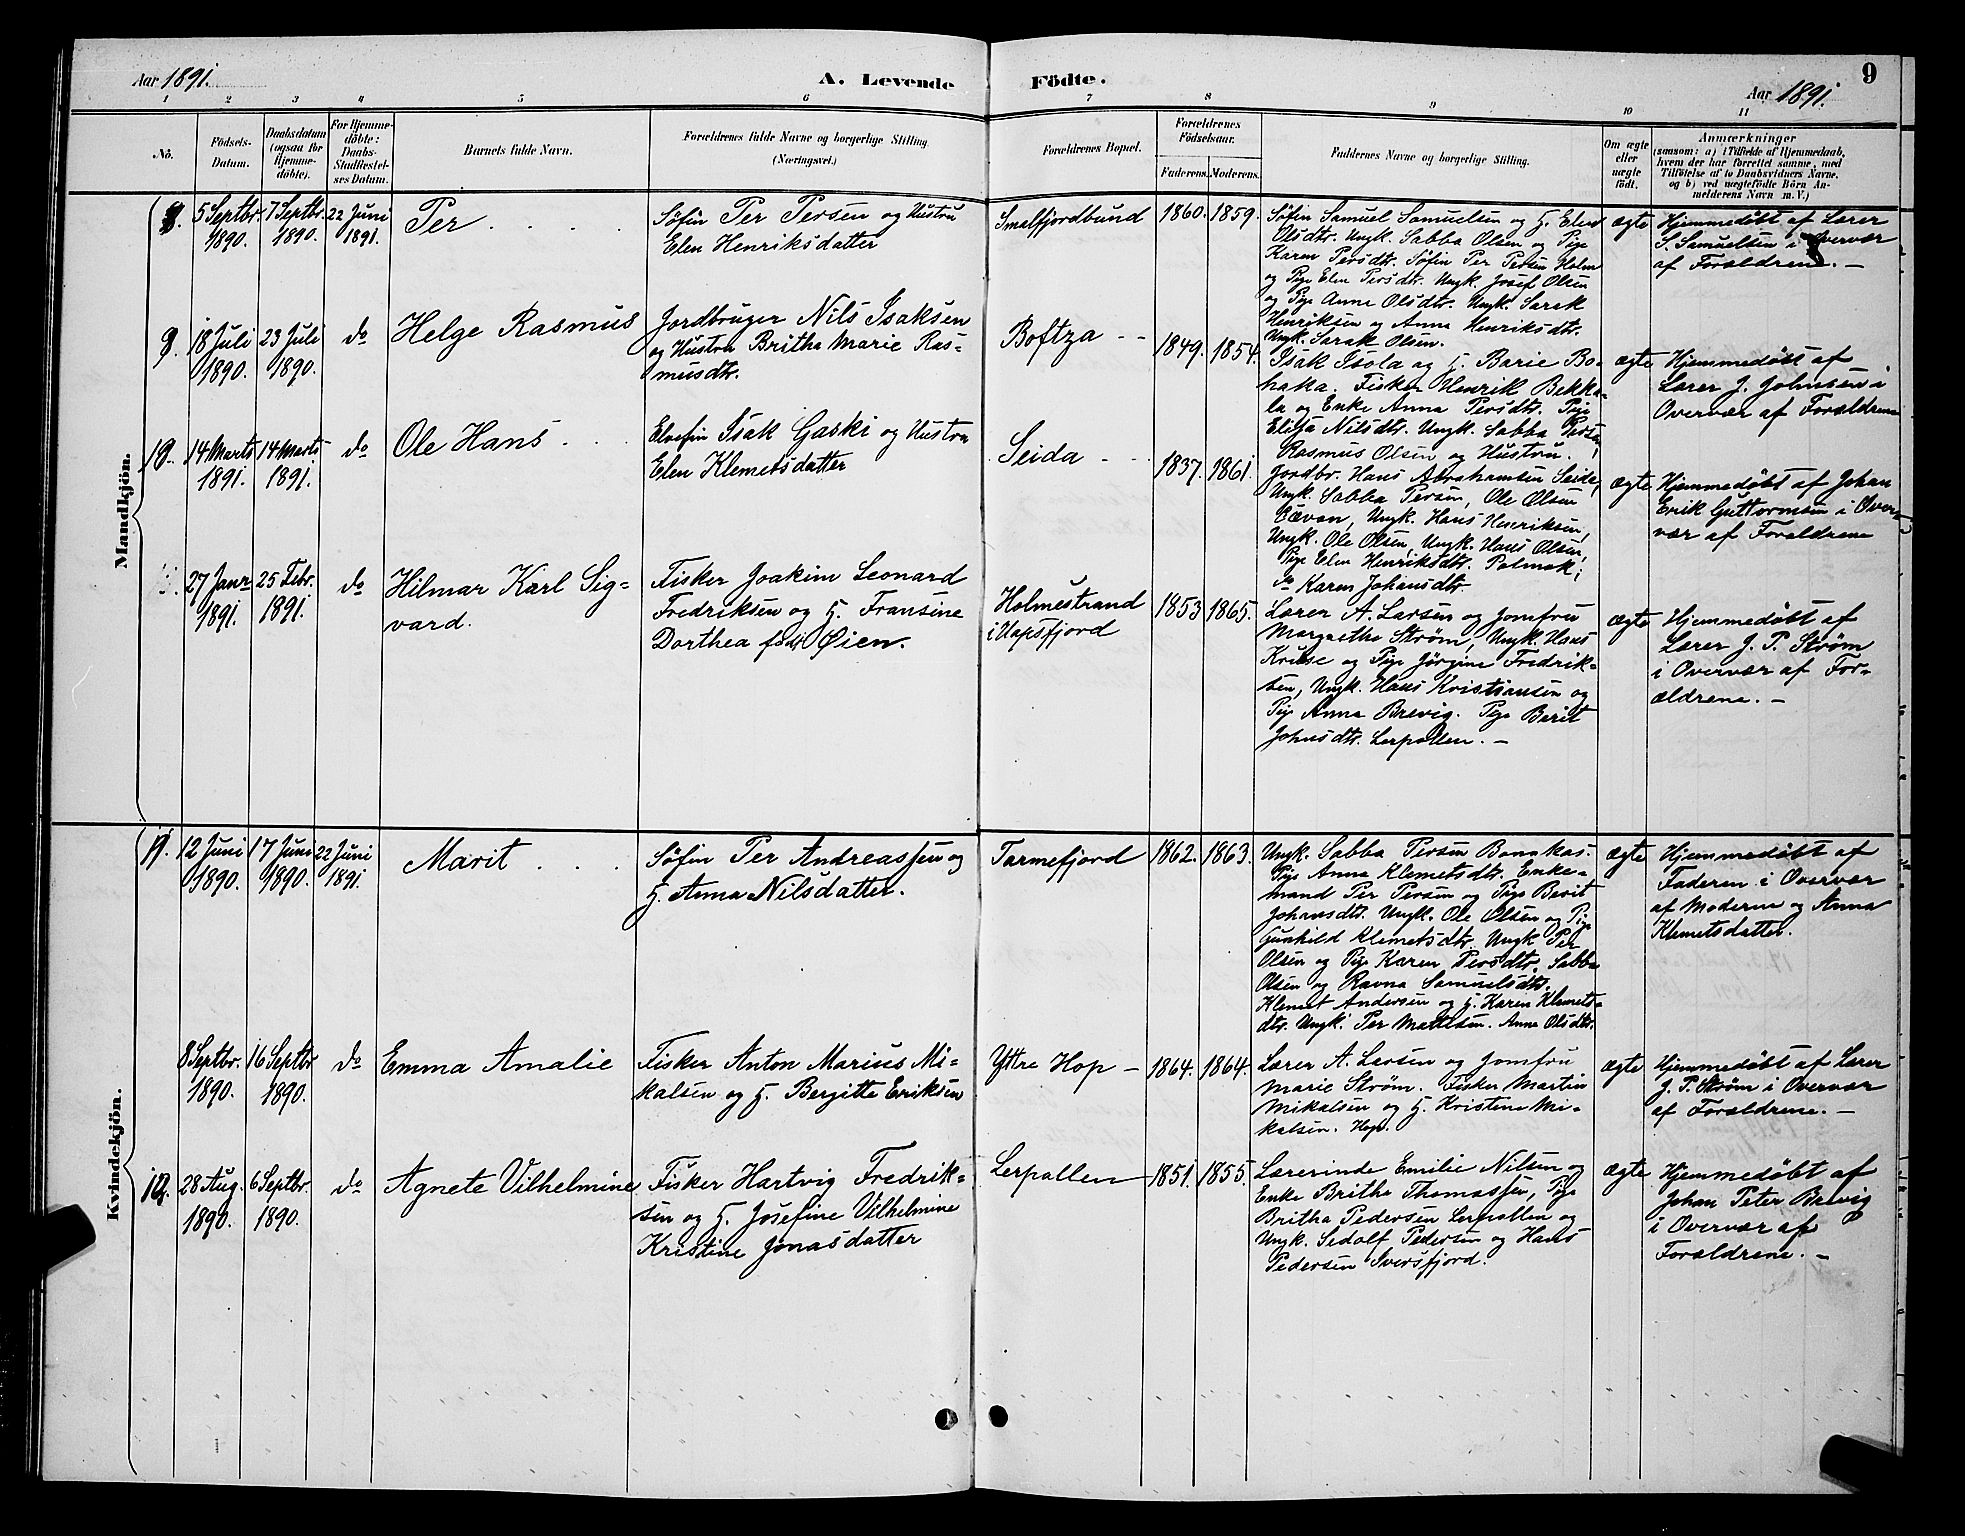 Aar 1891.
A. Levende
Födte.
9
Aar 1891.
1 2 3 4 5 6 7 8 9 10 11
No.
Födsels-
Datum.
Daabsdatum
(ogsaa for
Hjemme-
döbte).
For Hjemme-
döbte:
Daabs-
Stadfæstel-
ses Datum.
Barnets fulde Navn.
Forældrenes fulde Navne og borgerlige Stilling.
(Næringsvei.)
Forældrenes Bopæl.
Forældrenes
Födselsaar.
Faderens. Moderens.
Faddernes Navne og borgerlige Stilling.
Om ægte
eller
uægte
födt.
Anmærkninger
(saasom: a) i Tilfælde af Hjemmedaab,
hvem der har forrettet samme, med
Tilföielse af to Daabsvidners Navne,
og b) ved uægtefödte Börn An-
melderens Navn m. V.)
Mandkjön.
8.
5 Septbr.
1890.
7 Septbr.
1890.
22 Juni
1891.
Per
Søfin Per Persen og Hustru
Elen Henriksdatter
Smalfjordbund
1860.
1859.
Søfin Samuel Samuelsen og H. Elen
Olsdtr. Ungk. Sabba Olsen og Pige
Karen Persdtr. Søfin Per Persen Holm
og Pige Elen Persdtr. Ungk. Josef Olsen
og Pige Anne Olsdtr. Ungk. Sarak
Henriksen og Anna Henriksdtr.
Ungk. Sarak Olsen.
ægte
Hjemmedøbt af Lærer
S. Samuelsen i Overvær
af Forældrene. —
9.
18 Juli
1890.
23 Juli
1890.
do
Helge Rasmus
Jordbruger Nils Isaksen
og Hustru Britha Marie Ras-
musdtr.
Boftza
1849.
1854.
Isak Isola og H. Barie Bo-
haka. Fisker Henrik Bekka-
la og Enke Anna Persdtr. Pige
Elisa Nilsdtr. Ungk. Sabba Persen,
Rasmus Olsen og Hustru.
ægte
Hjemmedøbt af
Lærer J. Johnsen i
Overvær af Forældrene
10.
14 Marts
1891.
14 Marts
1891.
do
Ole Hans
Elvefin Isak Gaski og Hustru
Elen Klemetsdatter
Seida
1837.
1861.
Jordbr. Hans Abrahamsen Seida,
Ungk. Sabba Persen, Ole Olsen
Cævan, Ungk. Hans Henriksen,
Ungk. Ole Olsen, Ungk. Hans Olsen,
Pige Elen Henriksdtr. Polmak,
do Karen Johansdtr.
ægte
Hjemmedøbt af Johan
Erik Guttormsen i Over-
vær af Forældrene
27 Janr
1891.
25 Febr.
1891.
do
Hilmar Karl Sig-
vard.
Fisker Joakim Leonard
Fredriksen og H. Fransine
Dorthea født Øien.
Holmestrand
i Vapsfjord
1853
1865.
Lærer A. Larsen og Jomfru
Margrethe Strøm, Ungk. Hans
Kruse og Pige Jörgine Fredrik-
sen, Ungk. Hans Kristiansen og
Pige Anna Brevig. Pige Berit
Johnsdtr. Lerpollen. —
ægte
Hjemmedøbt af
Lærer J. P. Strøm
i Overvær af For-
ældrene. —
Kvindekjön.
12 Juni
1890.
17 Juni
1890.
22 Juni
1891.
Marit
Søfin Per Andreassen og
H. Anna Nilsdatter.
Tarmefjord
1862.
1863.
Ungk. Sabba Persen Bonakas.
Pige Anna Klemetsdtr. Enke-
mand Per Persen og Pige Berit
Johansdtr. Ungk. Ole Olsen og Pige
Gunhild Klemetsdtr. Ungk Per
Olsen og Pige Karen Persdtr. Sabba
Olsen og Ravna Samuelsdtr.
Klemet Andersen og H. Karen Klemets-
dtr. Ungk. Per Mathisen. Anne Olsdtr.
ægte
Hjemmedøbt af
Faderen i Overvær
af Moderen og Anna
Klemetsdatter.
8 Septbr.
1890.
16 Septbr
1890.
do
Emma Amalie
Fisker Anton Marius Mi-
kalsen og H. Bergitte Eriksen
Yttre Hop —
1864.
1864.
Lærer A. Larsen og Jomfru
Marie Strøm. Fisker Martin
Mikalsen og H. Kristine Mi-
kalsen. Hop.
ægte
Hjemmedøbt af Lærer
J. P. Strøm i Overvær
af Forældrene. —
12.
28 Aug.
1890.
6 Septbr.
1890.
do
Agnete Vilhelmine
Fisker Hartvig Fredrik-
sen og H. Josefine Vilhelmine
Kristine Jonasdatter
Lerpollen
1851.
1855.
Lærerinde Emilie Nilsen og
Enke Britha Thomassen, Pige
Britha Pedersen Lerpollen og
Ungk. Sedolf Pedersen og Hans
Pedersen Iversfjord.
ægte
Hjemmedøbt af
Johan Peter Brevig
i Overvær af
Forældrene. —